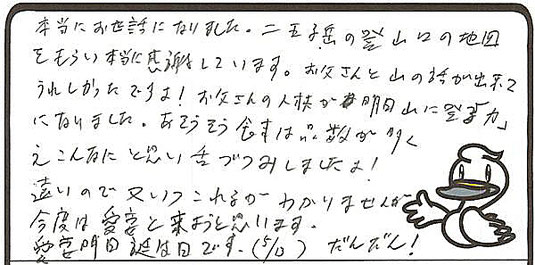 本当にお世話になりました。二王子岳の登山口の地図
をもらい本当に感謝しています。お父さんと山の話が出来て
うれしかったですよ!お父さんの人柄が明日山に登る力」
になりました。あそうそう食事は品数が多く
えこんなにと思い舌づつみしましたよ!
遠いので又いつこれるかわかりませんが
今度は愛妻と来ようと思います。
愛妻明日誕生日です。(5/13) だんだん!